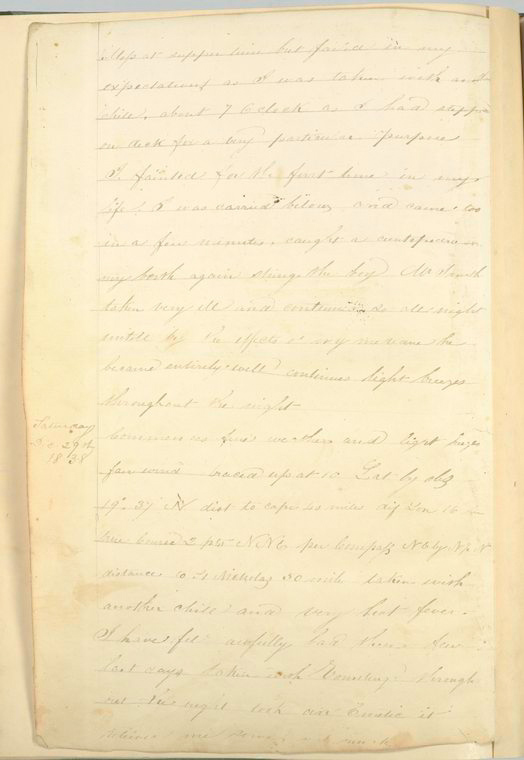 Slops at supper time but fail'd in my
expectations as I was taken with an
chill, about 7 Oclock as I had stepp
on deck for a very particular purpose
I fainted for the first time in my
life. I was carried below, and came too
in a few minutes, caught a centipede in
my berth again stung the boy Mr Smith
taken very ill and continued so all night
untill by the effects of my medicine he
became entirely well continues light breezes
throughout the night
Saturday
Dec 29th
1838
Commences fine weather and light breezes
fair wind braced up at 10 Lat by obs
19°.37 N dist to cape 40 miles dif Lon 16
true Course 2 pts NNE per Compass NE by N
distance to St Nicholas 30 mile taken with
another chill and very hot fever.
I have felt awfully bad these few
last days taken with Vomiting through
out the night took an Emetic it
relieved me some